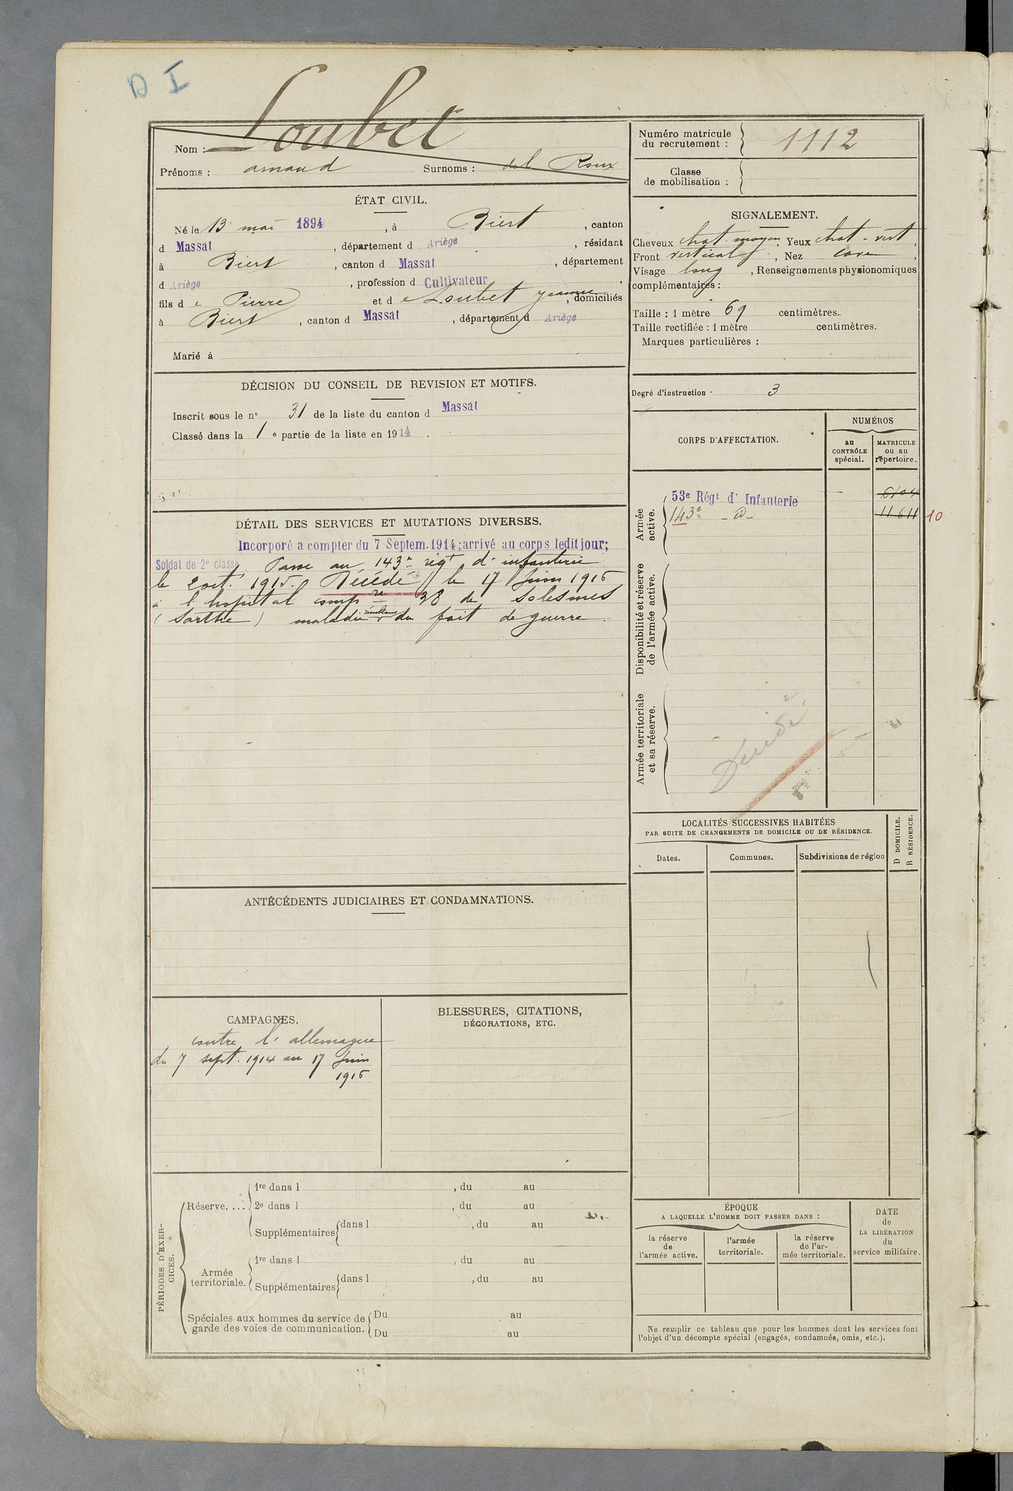 D I
Nom : Loubet
Prénoms : arnaud Surnoms : del Roux
Numéro matricule
du recrutement : 1112
Classe
de mobilisation :
ÉTAT CIVIL.
Né le 13 mai 1894, à Biert, canton
d Massat, département d Ariège, résidant
à Biert, canton d Massat, département
d Ariège, profession d Cultivateur,
fils d e Pierre et d e Loubet Jeanne, domiciliés
à Biert, canton d Massat, département d Ariège
Marié à
SIGNALEMENT.
Cheveux chat. moyen, Yeux chat. vert,
Front vertical, Nez cave,
Visage long, Renseignements physionomiques
complémentaires :
Taille : 1 mètre 69 centimètres.
Taille rectifiée : 1 mètre centimètres.
Marques particulières :
Degré d'instruction 3
DÉCISION DU CONSEIL DE REVISION ET MOTIFS.
Inscrit sous le n° 31 de la liste du canton d Massat
Classé dans la 1 e partie de la liste en 1914.
DÉTAIL DES SERVICES ET MUTATIONS DIVERSES.
Incorporé a compter du 7 Septem. 1914; arrivé au corps ledit jour;
Soldat de 2e classe Passé au 143e régt d'infanterie
le 2 oct. 1915. Décédé le 17 Juin 1916
à l'hopital comp re 38 de Solesmes
(Sarthe) maladie du fait de guerre.
CORPS D'AFFECTATION.
NUMÉROS
au
CONTRÔLE
spécial.
MATRICULE
ou au
répertoire.
Armée
active.
53e Régt d'Infanterie 6104
143e -d- 11611 10
Disponibilité et réserve
de l'armée active.
Armée territoriale
et sa réserve.
Décédé
LOCALITÉS SUCCESSIVES HABITÉES
PAR SUITE DE CHANGEMENTS DE DOMICILE OU DE RÉSIDENCE.
Dates.
Communes.
Subdivisions de région
D DOMICILE.
R RÉSIDENCE.
ANTÉCÉDENTS JUDICIAIRES ET CONDAMNATIONS.
CAMPAGNES.
contre l'allemagne
du 7 sept. 1914 au 17 Juin
1916
BLESSURES, CITATIONS,
DÉCORATIONS, ETC.
PÉRIODES D'EXER-
CICES.
Réserve....
1re dans l , du au
2e dans l , du au
Supplémentaires dans l , du au
Armée
territoriale.
1re dans l , du au
Supplémentaires dans l , du au
Spéciales aux hommes du service de
garde des voies de communication.
Du au
Du au
ÉPOQUE
A LAQUELLE L'HOMME DOIT PASSER DANS :
la réserve
de
l'armée active.
l'armée
territoriale.
la réserve
de l'ar-
mée territoriale.
DATE
de
LA LIBÉRATION
du
service militaire.
Ne remplir ce tableau que pour les hommes dont les services font
l'objet d'un décompte spécial (engagés, condamnés, omis, etc.).